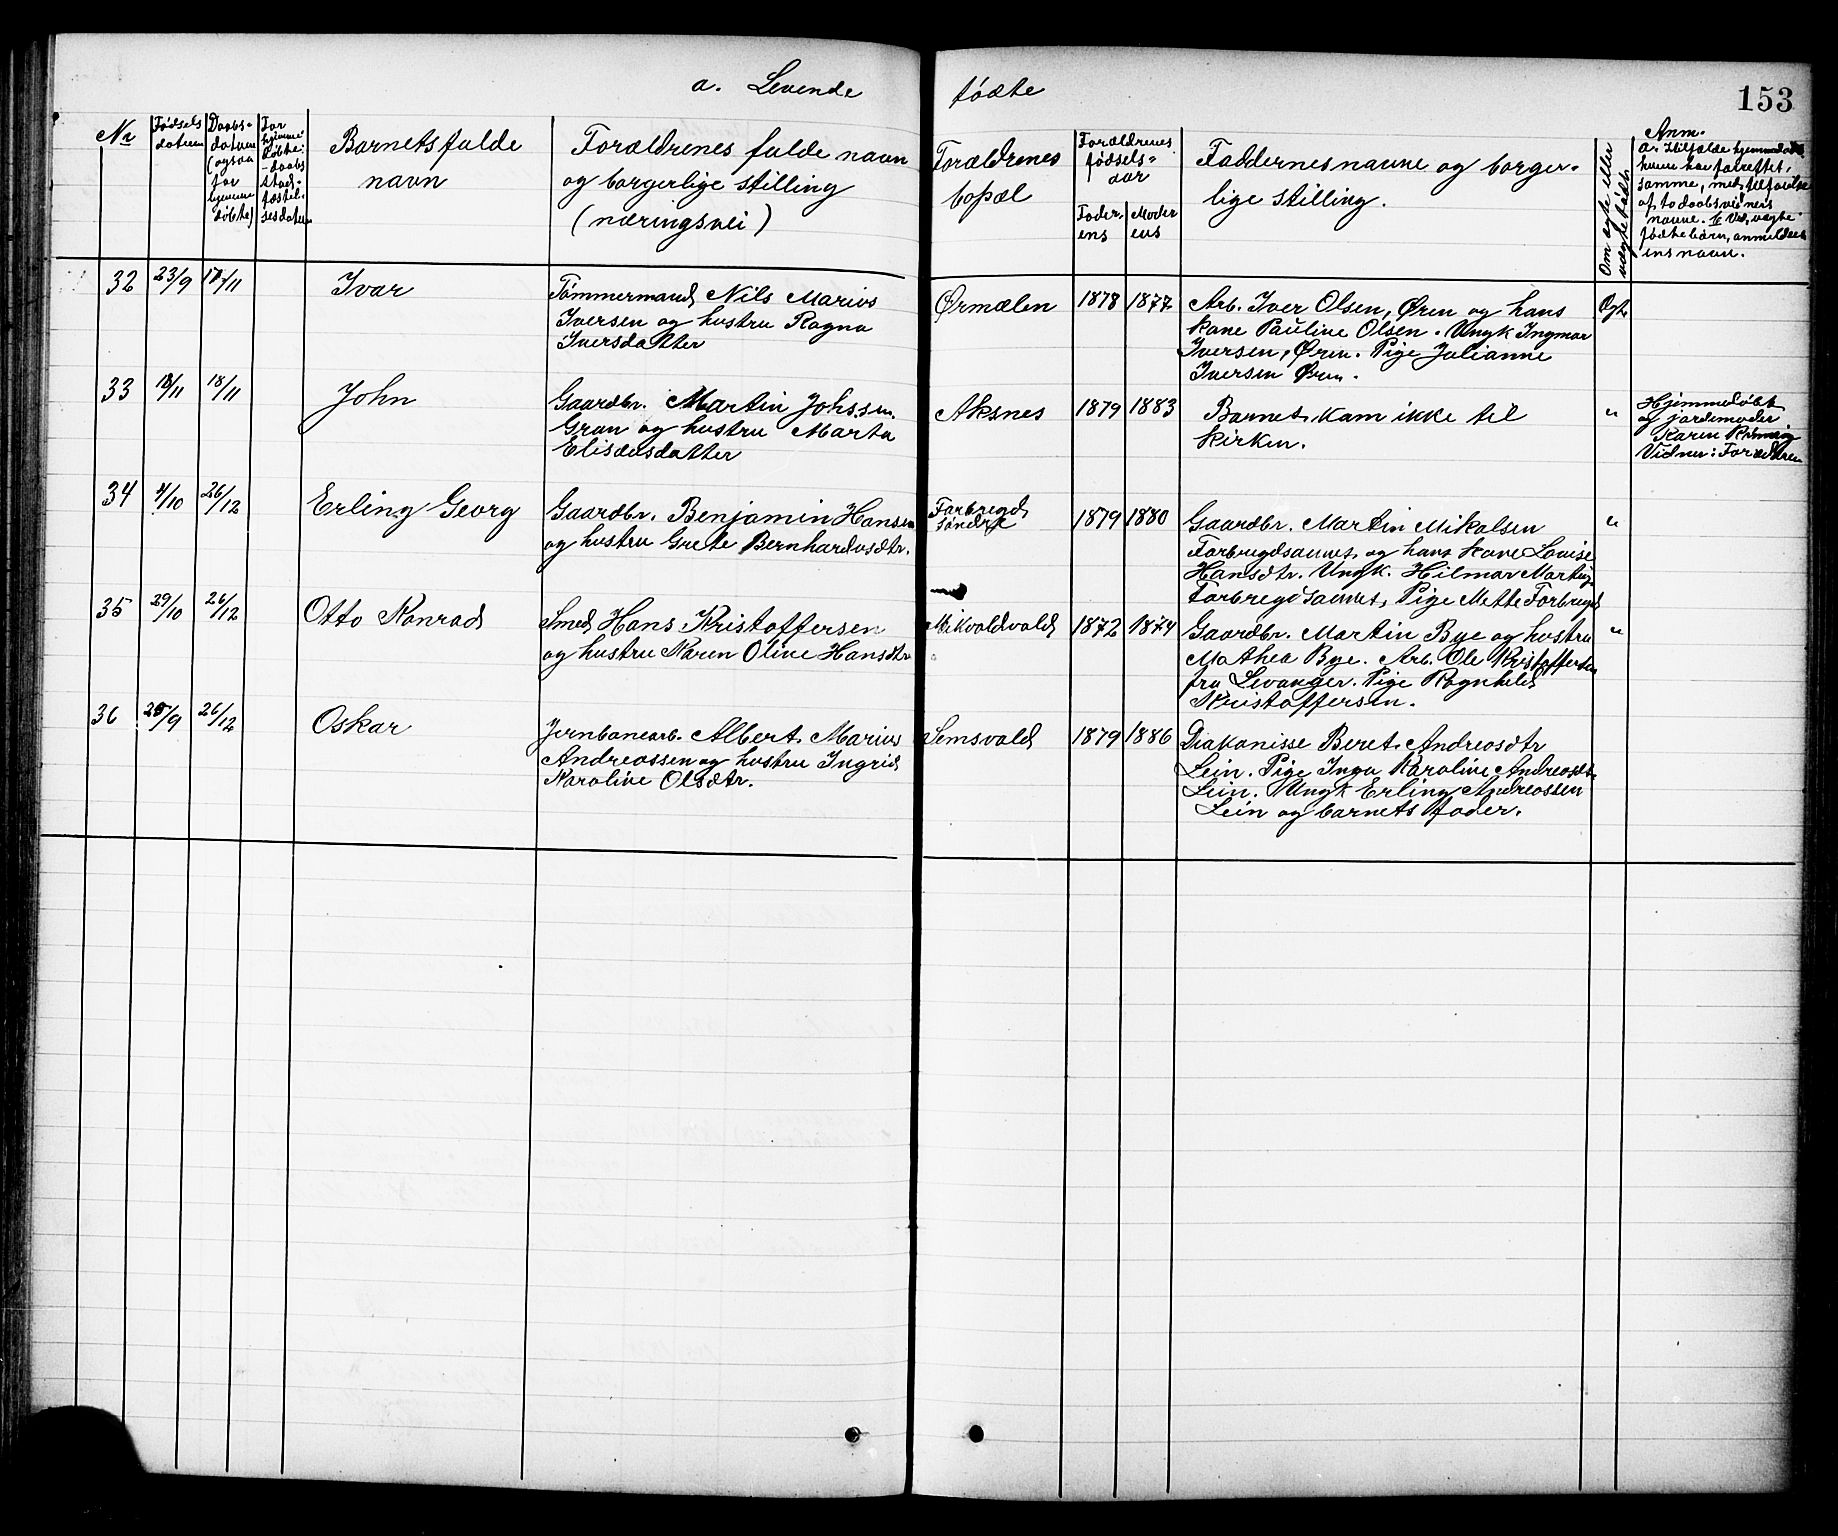 a. Levende fødte
153
Nr
Fødsels
datum
Daabs-
datum
(ogsaa
for
hjemme
døbte)
For
hjemme-
døbte:
daabs
stad-
fæstel-
sesdatum
Barnets fulde
navn
Forældrenes fulde navn
og borgerlige stilling
(næringsvei)
Forældrenes
bopæl
Forældrenes
fødsels-
aar
Fader
ens
Moder
ens
Faddernes navne og borger-
lige stilling.
Om ægte eller
uægte født.
Anm.
a. I tilfælde hjemmedaab
hvem har forrettet
samme, med tilføielse
af to daabsvidners
navne. b. Ved uægte
fødte børn, anmelder
ens navn.
32
23/9
17/11
Ivar
Tømmermand Nils Marius
Iversen og hustru Ragna
Iversdatter
Ørmælen
1878
1877
Arb. Iver Olsen, Øren og hans
kone Pauline Olsen. Ungk Ingmar
Iversen, Øren. Pige Julianne
Iversen Øren.
Ægte
33
18/11
18/11
John
Gaardbr. Martin Johssen
Gran og hustru Marta
Elisæusdatter
Aksnes
1879
1883
Barnet kom ikke til
kirken.
"
Hjemmedøbt
af jordemoder
Karen
Vidner: Forældrene
34
4/10
26/12
Erling Georg
Gaardbr. Benjamin Hansen
og hustru Grete Bernhardusdtr.
Forbregd
søndre
1879
1880
Gaardbr. Martin Mikalsen
Forbregdsaunet og hans kone Louise
Hansdtr. Ungk. Hilmar Martinsen
Forbregdsaunet, Pige Mette Forbregd
"
35
29/10
26/12
Otto Konrad
Smed Hans Kristoffersen
og hustru Karen Oline Hansdtr
Mikvoldvald
1872
1874
Gaardbr. Martin Bye og hustru
Mathea Bye. Arb. Ole Kristoffersen
fra Levanger. Pige Ragnhild
Kristoffersen.
"
36
25/9
26/12
Oskar
Jernbanearb. Albert Marius
Andreassen og hustru Ingrid
Karoline Olsdtr.
Semsvald
1879
1886
Diakonisse Beret Andreasdtr
Lein. Pige Inga Karoline Andreasdtr
Lein. Ungk Erling Andreassen
Lein og barnets fader.